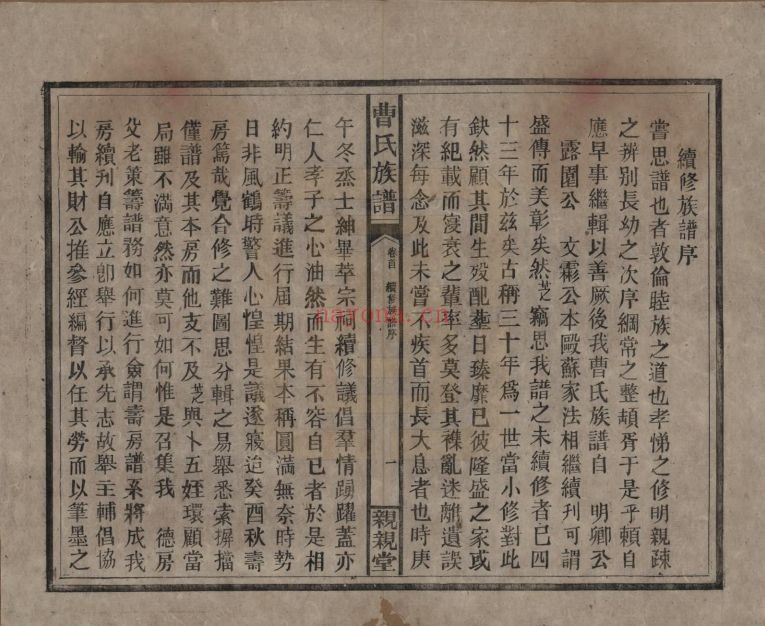 續修族譜序
嘗思譜也者敦倫睦族之道也孝悌之修明親疎
之辨別長幼之次序綱常之整頓胥于是乎賴自
應早事繼輯以善厥後我曹氏族譜自　明卿公
露園公　文霨公本毆蘇家法相繼續刊可謂
盛傳而美彰矣然芝竊思我譜之未續修者已四
十三年於茲矣古稱三十年爲一世當小修對此
缺然顧其間生殁配塟日臻靡已彼隆盛之家或
有紀載而寖衰之輩率多莫登其襍亂迷離遺誤
滋深每念及此未嘗不疾首而長大息者也時庚
曹氏族譜
卷首　續修族譜序
一
親親堂
午冬烝士紳畢萃宗祠續修議倡羣情踴躍蓋亦
仁人孝子之心油然而生有不容自已者於是相
約明正籌議進行屆期結果本稱圓滿無奈時勢
日非風鶴時警人心惶惶是議遂寢迨癸酉秋壽
房篤哉覺合修之難圖思分輯之易舉悉索摒擋
僅譜及其本房而他支不及芝與卜五姪環顧當
局雖不滿意然亦莫可如何惟是召集我　德房
父老策籌譜務如何進行僉謂壽房譜系將成我
房續刋自應立卽舉行以承先志故舉主輔倡協
以輸其財公推參經編督以任其勞而以筆墨之
narona.cn